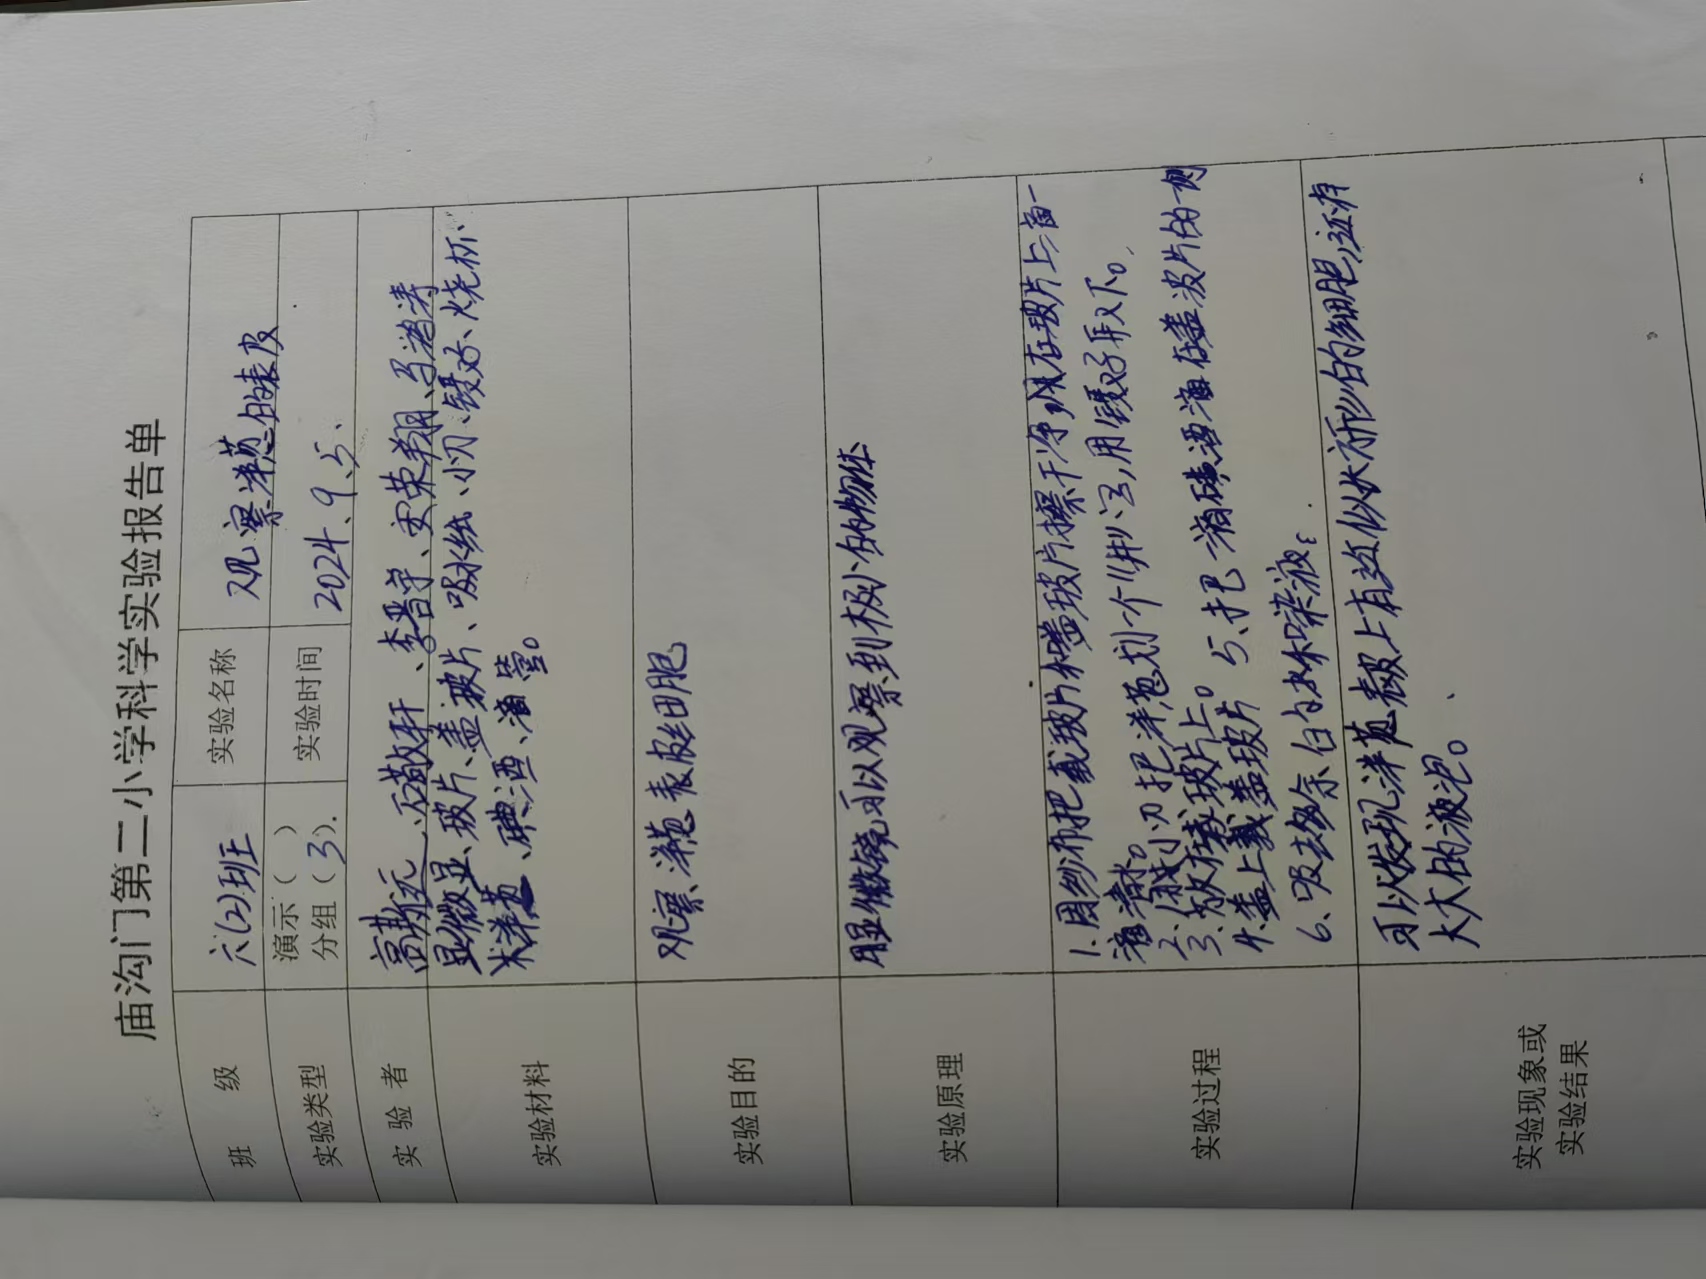 庙沟门第二小学科学实验报告单
班 级 六(2)班 实验名称 观察洋葱的表皮
实验类型 演示( ) 分组(3). 实验时间 2024.9.5.
实验者 高 元、石 轩、李晋宇、史荣翔、马 涛
实验材料 显微显、玻片、盖玻片、吸水纸、小刀、镊子、烧杯、
洋葱、碘酒、滴管。
实验目的 观察洋葱表皮细胞
实验原理 用显微镜可以观察到极小的物体
实验过程 1.用纱布把载玻片和盖玻片擦干净,在玻片上滴一
滴清水。
2.用小刀把洋葱划个“井”字,用镊子取下。
3.放在载玻片上。
4.盖上盖玻片。5.把一滴碘酒滴在盖玻片的一侧
6.吸去多余的水和染液。
实验现象或实验结果 可以发现洋葱表极上有这似长方形的细胞,还有
大大的液泡。